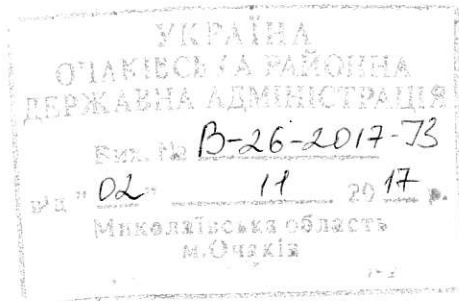 УКРАЇНА
ОЧАКІВСЬКА РАЙОННА
ДЕРЖАВНА АДМІНІСТРАЦІЯ
Вих. № В-26-2017-ЗЗ
від "02" 11 2017 р.
Миколаївська область
м.Очаків